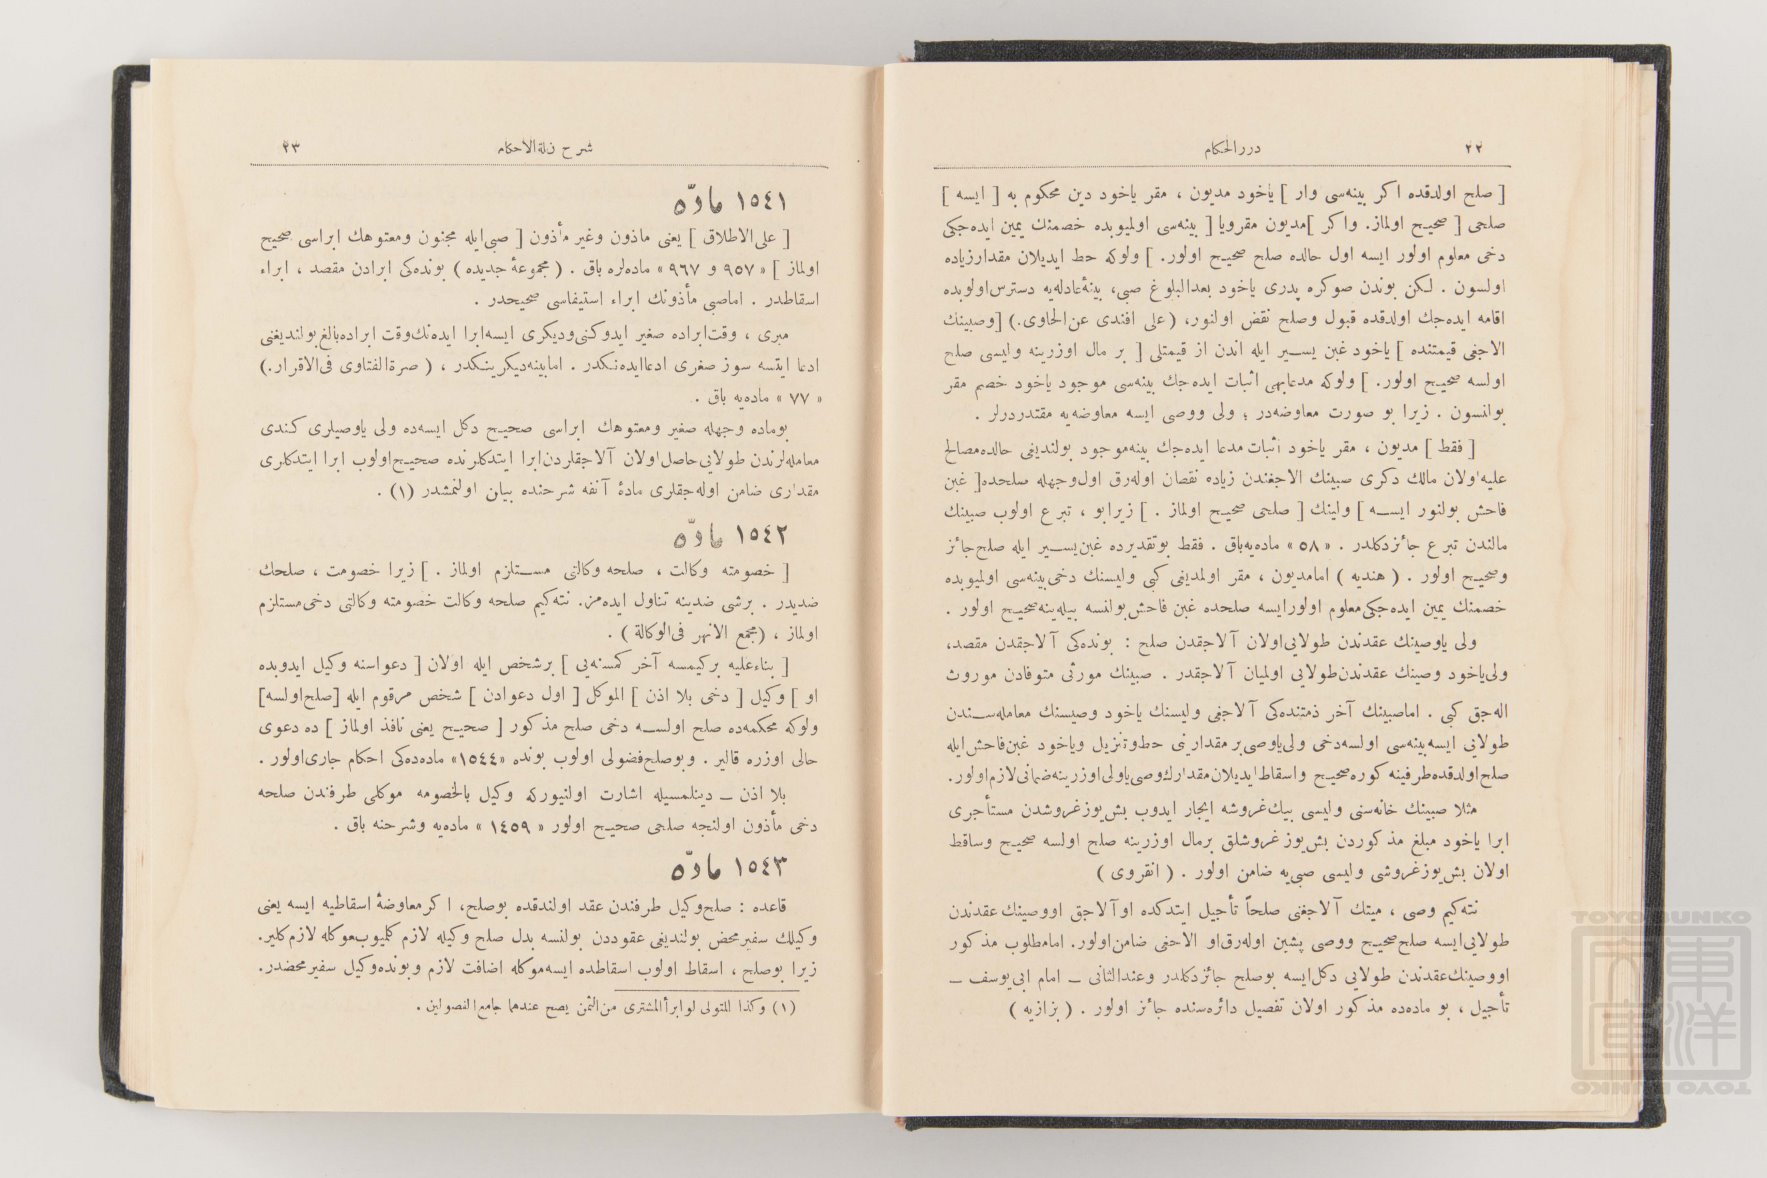 ٢٢
دررالحكام
[ صلح اولدقده اكر بينه‌سى وار ] ياخود مديون ، مقر ياخود دين محكوم به [ ايسه ]
صلحى [ صحيح اولماز. واكر ]مديون مقرويا [ بينه‌سى اولميوبده خصمنك يمين ايده‌جكى
دخى معلوم اولور ايسه اول حالده صلح صحيح اولور. ] ولوكه حط ايديلان مقدارزياده
اولسون . لكن بوندن صوكره پدرى ياخود بعدالبلوغ صبى، بينهٔ‌عادله‌يه دسترس‌اولوبده
اقامه ايده‌جك اولدقده قبول وصلح نقض اولنور، (على افندى عن‌الحاوى.) [وصبينك
الاجغى قيمتنده ] ياخود غبن يسير ايله اندن از قيمتلى [ بر مال اوزرينه وليسى صلح
اولسه صحيح اولور. ] ولوكه مدعابهى اثبات ايده‌جك بينه‌سى موجود ياخود خصم مقر
بولنسون . زيرا بو صورت معاوضه‌در ؛ ولى ووصى ايسه معاوضه‌يه مقتدردرلر .
[ فقط ] مديون ، مقر ياخود اثبات مدعا ايده‌جك بينه‌موجود بولنديغى حالده‌مصالح
عليه‌اولان مالك دكرى صبينك الاجغندن زياده نقصان اوله‌رق اول‌وجهله صلحده[ غبن
فاحش بولنور ايسه ] ولينك [ صلحى صحيح اولماز . ] زيرابو ، تبرع اولوب صبينك
مالندن تبرع جائزدكلدر . «٥٨» ماده‌يه‌باق . فقط بوتقديرده غبن‌يسير ايله صلح‌جائز
وصحيح اولور . ( هنديه ) امامديون ، مقر اولمديغى كبى وليسنك دخى‌بينه‌سى اولميوبده
خصمنك يمين ايده‌جكى‌معلوم اولورايسه صلحده غبن فاحش‌بولنسه بيله‌ينه‌صحيح اولور .
ولى ياوصينك عقدندن طولايى‌اولان آلاجقدن صلح : بونده‌كى آلاجقدن مقصد،
ولى‌ياخود وصينك عقدندن‌طولايى اولميان آلاجقدر . صبينك مورثى متوفادن موروث
اله‌جق كبى . اماصبينك آخر ذمتنده‌كى آلاجغى وليسنك ياخود وصيسنك معامله‌سندن
طولايى ايسه‌بينه‌سى اولسه‌دخى ولى‌ياوصى‌بر مقدارينى حط‌وتنزيل وياخود غبن‌فاحش‌ايله
صلح‌اولدقده‌طرفينه كوره‌صحيح واسقاط‌ايديلان‌مقدارك‌وصى‌ياولى‌اوزرينه‌ضمانى‌لازم‌اولور.
مثلا صبينك خانه‌سنى وليسى بيك‌غروشه ايجار ايدوب بش‌يوزغروشدن مستأجرى
ابرا ياخود مبلغ مذكوردن بش‌يوز غروشلق برمال اوزرينه صلح اولسه صحيح وساقط
اولان بش‌يوزغروشى وليسى صبى‌يه ضامن اولور . ( انقروى )
نته‌كيم وصى ، ميتك آلاجغنى صلحاً تأجيل ايتدكده اوآلاجق اووصينك عقدندن
طولايى‌ايسه صلح‌صحيح ووصى پشين اوله‌رق‌او الاجغى ضامن‌اولور. امامطلوب مذكور
اووصينك‌عقدندن طولايى دكل‌ايسه بوصلح جائزدكلدر وعندالثانى ـ امام ابى‌يوسف ـ
تأجيل ، بو ماده‌ده مذكور اولان تفصيل دائره‌سنده جائز اولور . ( بزازيه )
شرح مجلةالاحكام
٢٣
١٥٤١ مادّه
[ على‌الاطلاق ] يعنى ماذون وغير مأذون [ صبى‌ايله مجنون ومعتوهك ابراسى صحيح
اولماز ] « ٩٥٧ و ٩٦٧ » ماده‌لره باق . ( مجموعهٔ جديده ) بونده‌كى ابرادن مقصد ، ابراء
اسقاطدر . اماصبى مأذونك ابراء استيفاسى صحيحدر .
مبرى ، وقت‌ابراده صغير ايدوكنى‌وديكرى ايسه‌ابرا ايده‌نك‌وقت ابراده‌بالغ‌بولنديغنى
ادعا ايتسه سوز صغرى ادعاايده‌نكدر . امابينه‌ديكرينكدر ، ( صرةالفتاوى فى‌الاقرار.)
« ٧٧ » ماده‌يه باق .
بوماده وجهله صغير ومعتوهك ابراسى صحيح دكل ايسه‌ده ولى ياوصيلرى كندى
معامله‌لرندن طولايى‌حاصل‌اولان آلاجقلردن‌ابرا ايتدكلرنده صحيح‌اولوب ابرا ايتدكلرى
مقدارى ضامن اوله‌جقلرى مادهٔ آنفه شرحنده بيان اولنمشدر (١) .
١٥٤٢ مادّه
[ خصومته وكالت ، صلحه وكالتى مستلزم اولماز . ] زيرا خصومت ، صلحك
ضديدر . برشى ضدينه تناول ايده‌مز. نته‌كيم صلحه وكالت خصومته وكالتى دخى‌مستلزم
اولماز ، (مجمع الانهر فى‌الوكالة ) .
[ بناءعليه بركيمسه آخر كمسنه‌يى ] برشخص ايله اولان [ دعواسنه وكيل ايدوبده
او ] وكيل [ دخى بلا اذن ] الموكل [ اول دعوادن ] شخص مرقوم ايله [صلح‌اولسه]
ولوكه محكمه‌ده صلح اولسه دخى صلح مذكور [ صحيح يعنى نافذ اولماز ] ده دعوى
حالى اوزره قالير . وبوصلح‌فضولى اولوب بونده «١٥٤٤» ماده‌ده‌كى احكام جارى‌اولور .
بلا اذن ـ دينلمسيله اشارت اولنيوركه وكيل بالخصومه موكلى طرفندن صلحه
دخى مأذون اولنجه صلحى صحيح اولور « ١٤٥٩ » ماده‌يه وشرحنه باق .
١٥٤٣ مادّه
قاعده : صلح‌وكيل طرفندن عقد اولندقده بوصلح، اكرمعاوضهٔ اسقاطيه ايسه يعنى
وكيلك سفيرمحض بولنديغى عقوددن بولنسه بدل صلح وكيله لازم كليوب‌موكله لازم‌كلير.
زيرا بوصلح ، اسقاط اولوب اسقاطده ايسه‌موكله اضافت لازم وبونده‌وكيل سفيرمحضدر.
(١) وكذا المتولى لوابرأالمشترى من‌الثمن يصح عندهما جامع‌الفصولين .
TOYO BUNKO
東洋文庫
TOYO BUNKO